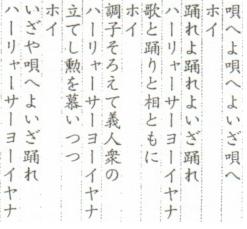 唄へよ唄へよいざ唄へ
ホイ
踊れよ踊れよいざ踊れ
ハーリャーサーヨーイヤナ
歌と踊りと相ともに
ホイ
調子そろえて義人衆の
ハーリャーサーヨーイヤナ
立てし勲を慕いつつ
ホイ
いざや唄へよいざ踊れ
ハーリャーサーヨーイヤナ